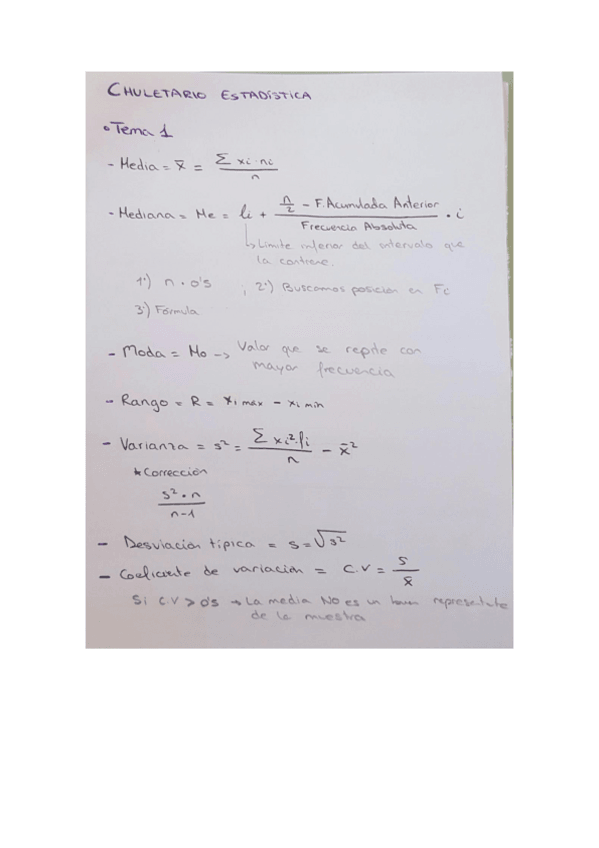 CHULETARIO ESTADÍSTICA
• Tema 1
- Media = x̄ = Σ xi · ni / n
- Mediana = Me = li + (n/2 - F. Acumulada Anterior / Frecuencia Absoluta) · i
↳ Límite inferior del intervalo que
la contiene.
1º) n · 0's ; 2º) Buscamos posición en Fc
3º) Fórmula
- Moda = Mo -> Valor que se repite con
mayor frecuencia
- Rango = R = xi max - xi min
- Varianza = s² = Σ xi² · fi / n - x̄²
* Corrección
s² · n / n-1
- Desviación típica = s = √s²
- Coeficiente de variación = C.V = s / x̄
Si C.V > 0's → La media NO es un buen representante
de la muestra